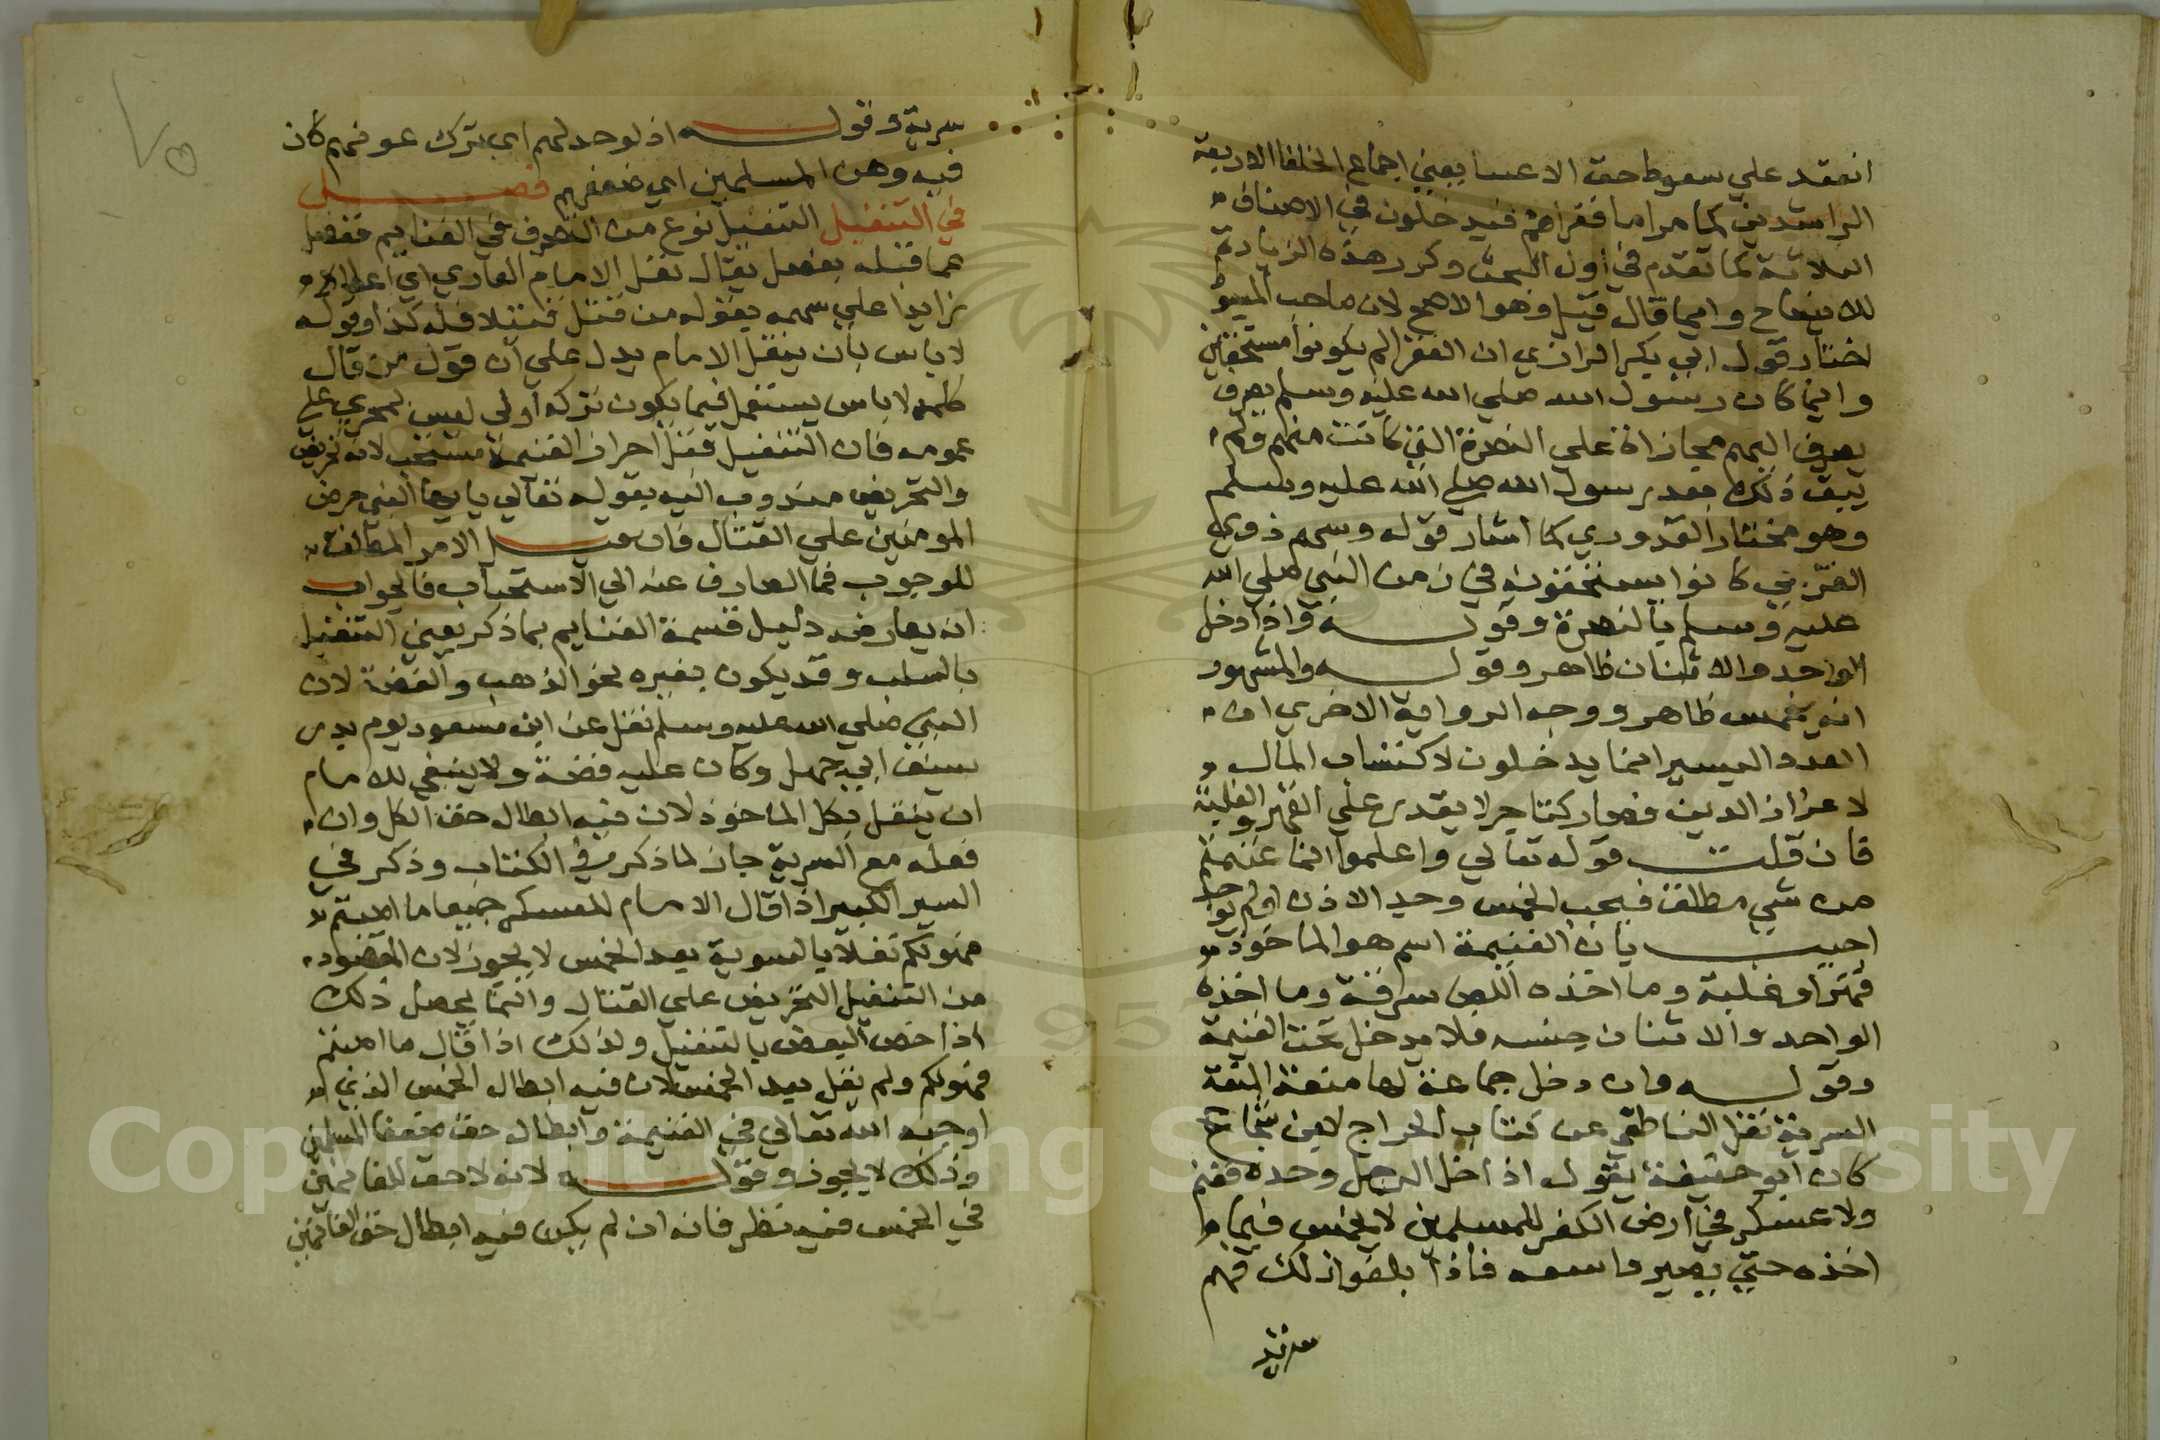 انعقد علي سقوط حق الاغنيا يعني اجماع الخلفا الاربعة
الراشدين كما مر اما فقراهم فيدخلون في الاصناف
الثلاثة كما تقدم في اول البحث وكرر هذه الزيادة
للايضاح وانما قال قيل وهو الاصح لان صاحب المبسوط
اختار قول ابي بكر الرازي ان الفقرا لم يكونوا مستحقين
وانما كان رسول الله صلي الله عليه وسلم يصرف
يصرف اليهم مجازاة علي النصرة التي كانت منهم ولم
يبق ذلك بعد رسول الله صلي الله عليه وسلم
وهو مختار القدوري كما اشار قوله وسهم ذوي
القربي كانوا يستحقونه في زمن النبي صلي الله
عليه وسلم بالنصرة وقوله واذا دخل
الواحد والاثنان ظاهر وقوله والمشهور
انه يخمس ظاهر ووجه الرواية الاخري ان
العدد اليسير انما يدخلون لاكتساب المال
لا عزاز الدين فصار كتاجر لا يقدر علي القهر والغلبة
فان قلت قوله تعالي واعلموا انما غنمتم
من شي مطلق فيجب الخمس وجد الاذن او لم يوجد
اجيب بان الغنيمة اسم هو الماخوذ
قهرا وغلبة وما اخذه اللص سرقة وما اخذه
الواحد والاثنان جنسه فلا يدخل تحت الغنيمة
وقوله وان دخل جماعة لها منعة البتة
السرقة نقل الناطقي عن كتاب الخراج لابن شجاع
كان ابو حنيفة يقول اذا دخل الرجل وحده فغنم
ولا عسكر في ارض الكفر للمسلمين لا يخمس فيما
اخذه حتي يصير ما سعه فاذا بلغوا ذلك فهم
سرية
سرية وقوله اذ لو خذلهم اي بترك عونهم كان
فيه وهن المسلمين اي ضعفهم فصل
في التنفيل التنفيل نوع من التصرف في الغنايم ففصل
عما قبله بفصل يقال نفل الامام الغازي اي اعطاه
زايدا علي سهمه بقوله من قتل قتيلا فله كذا وقوله
لا باس بان ينفل الامام يدل علي ان قول من قال
كلمه لا باس يستعمل فيما يكون تركه اولي ليس بمجري علي
عمومه فان التنفيل قبل احراز الغنيمة مستحب لانه تحريض
والتحريض مندوب اليه بقوله تعالي يا ايها النبي حرض
المومنين علي القتال فان قيل الامر المطلق
للوجوب فما الصارف عنه الي الاستحباب فالجواب
انه يعارضه دليل قسمة الغنايم بما ذكر يعني التنفيل
بالسلب وقد يكون بغيره نحو الذهب والفضة لان
النبي صلي الله عليه وسلم نفل عن ابن مسعود يوم بدر
سيف ابي جهل وكان عليه فضة ولا ينبغي للامام
ان ينفل بكل الماخوذ لان فيه ابطال حق الكل وان
فعله مع السرية جاز لما ذكر في الكتاب وذكر في
السير الكبير اذا قال الامام للعسكر جميعا ما اصبتم
فهو لكم نفلا بالسوية بعد الخمس لا يجوز لان المقصود
من التنفيل التحريض علي القتال وانما يحصل ذلك
اذا خص البعض بالتنفيل ولذلك اذا قال ما اصبتم
فهو لكم ولم يقل بعد الخمس لان فيه ابطال الخمس الذي
اوجبه الله تعالي في الغنيمة وابطال حق ضعفا المسلمين
وذلك لا يجوز وقوله لانه لا حق للغانمين
في الخمس فيه نظر فانه ان لم يكن فيه ابطال حق الغانمين
Copyright © King Saud University